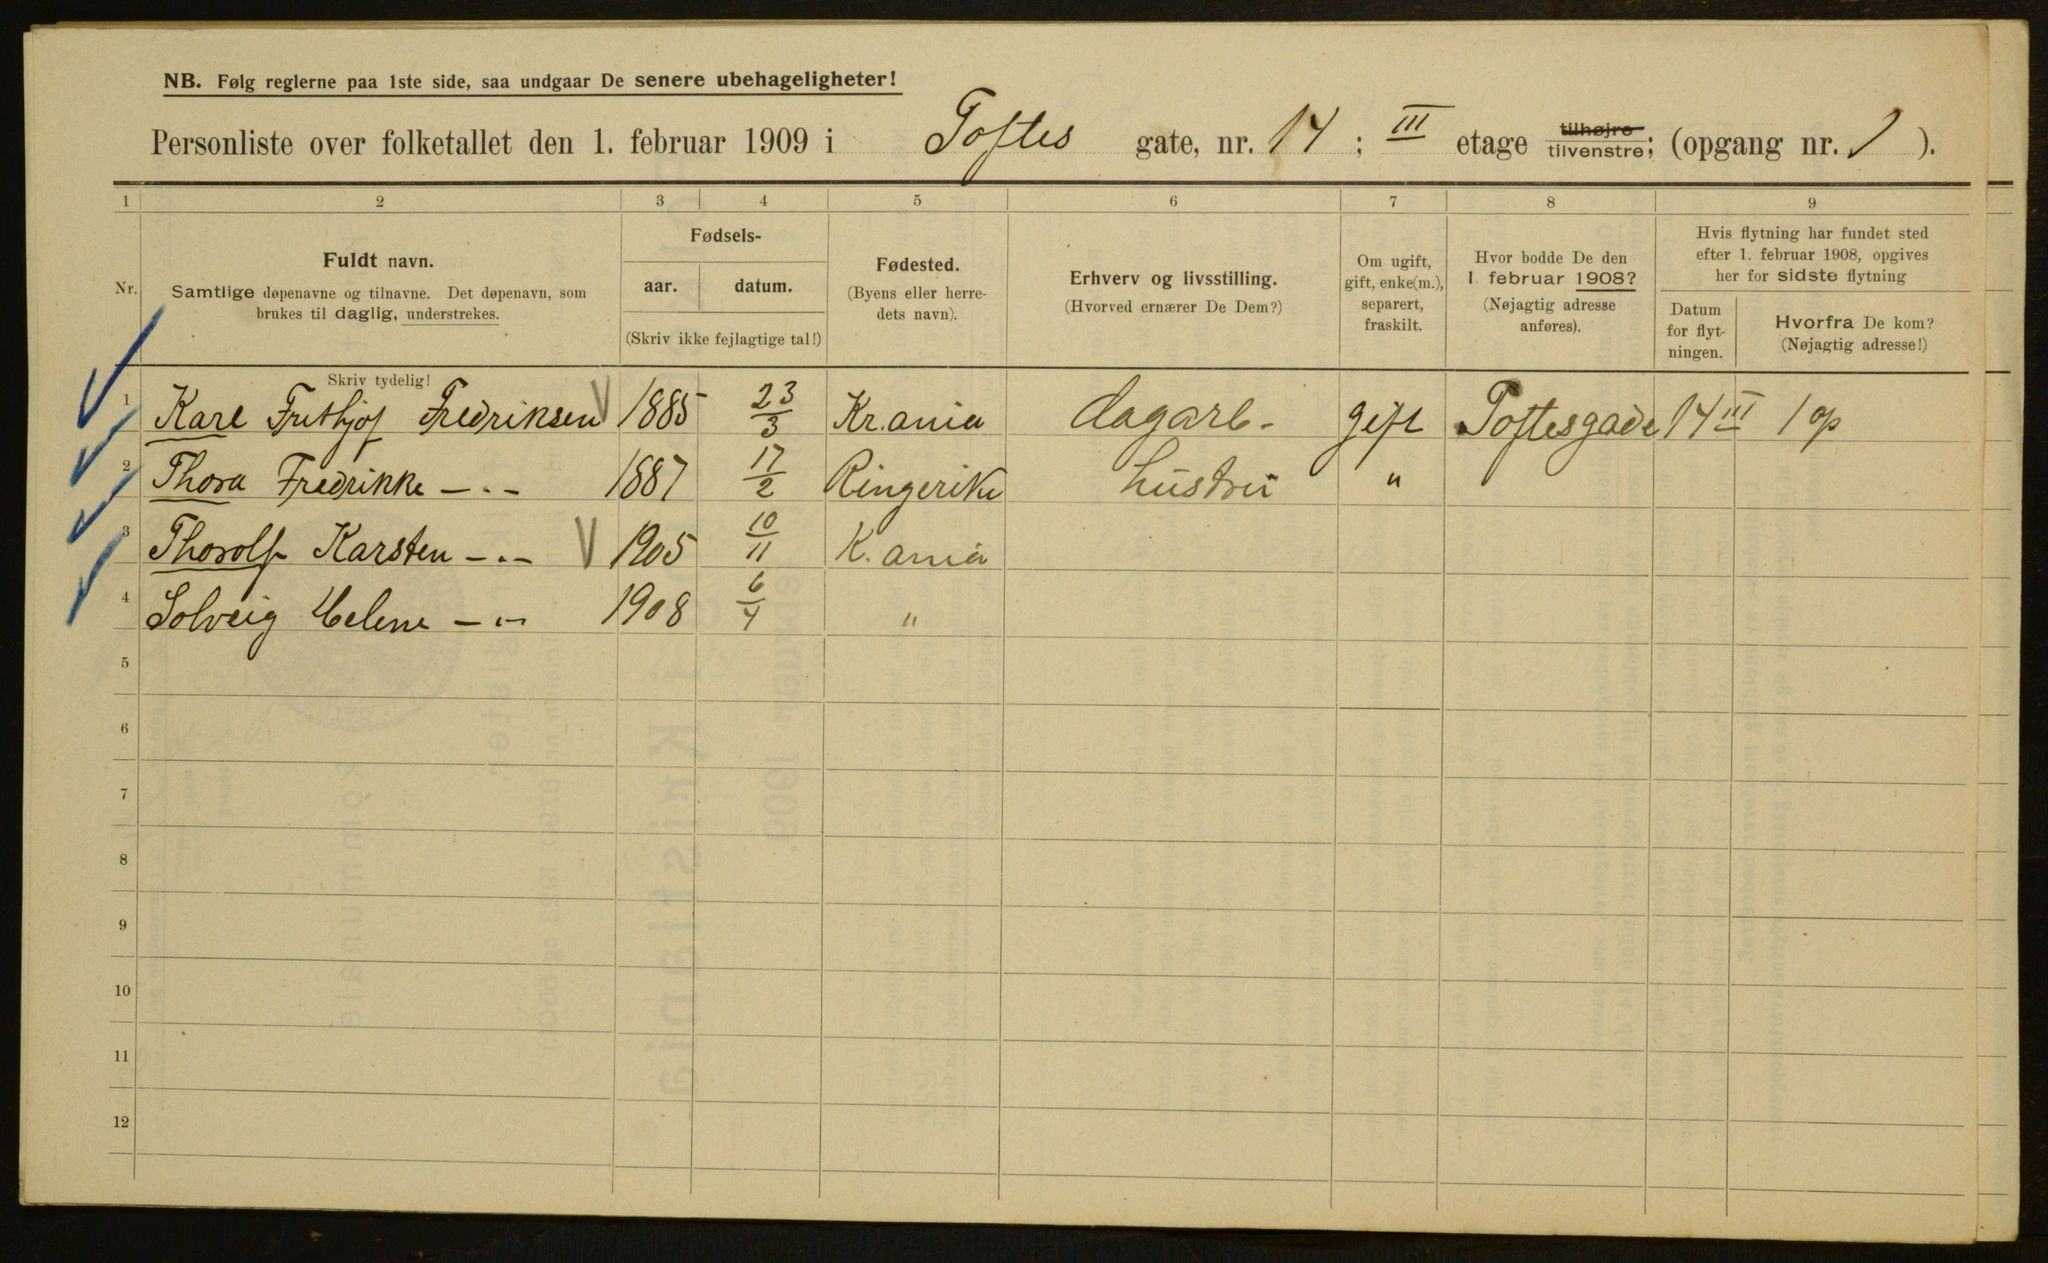 NB. Følg reglerne paa 1ste side, saa undgaar De senere ubehageligheter!
Personliste over folketallet den 1. februar 1909 i Toftes gate, nr. 14 ; III etage tilhøjre tilvenstre; (opgang nr. 1 ).
1 2 3 4 5 6 7 8 9
Nr.
Fuldt navn.
Samtlige døpenavne og tilnavne. Det døpenavn, som
brukes til daglig, understrekes.
Skriv tydelig!
Fødsels-
aar. datum.
(Skriv ikke fejlagtige tal!)
Fødested.
(Byens eller herre-
dets navn).
Erhverv og livsstilling.
(Hvorved ernærer De Dem?)
Om ugift,
gift, enke(m.),
separert,
fraskilt.
Hvor bodde De den
1 februar 1908?
(Nøjagtig adresse
anføres).
Hvis flytning har fundet sted
efter 1. februar 1908, opgives
her for sidste flytning
Datum
for flyt-
ningen.
Hvorfra De kom?
(Nøjagtig adresse!)
1 Karl Frithjof Fredriksen 1885 23/3 Kr.ania dagarb- gift Toftesgade 14 III 1 op
2 Thora Fredrikke -"- 1887 17/2 Ringerike hustru "
3 Thorolf Karsten -"- 1905 10/11 K.ania
4 Solveig Helene -"- 1908 6/4 "
5
6
7
8
9
10
11
12